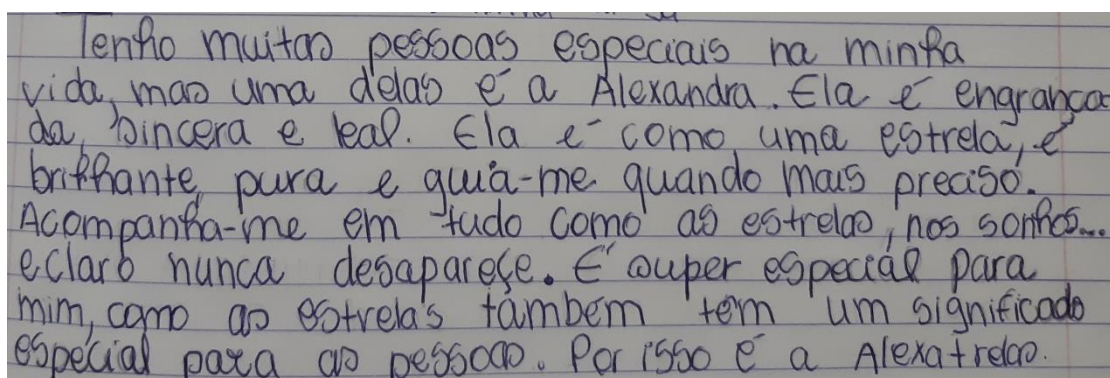 Tenho muitas pessoas especiais na minha
vida, mas uma delas é a Alexandra. Ela é engrança
da, sincera e leal. Ela é como uma estrela, é
brilhante, pura e guia-me quando mais preciso.
Acompanha-me em tudo como as estrelas, nos sonhos...
e claro nunca desapareçe. É super especial para
mim, como as estrelas também tem um significado
especial para as pessoas. Por isso é a Alexatrelas.